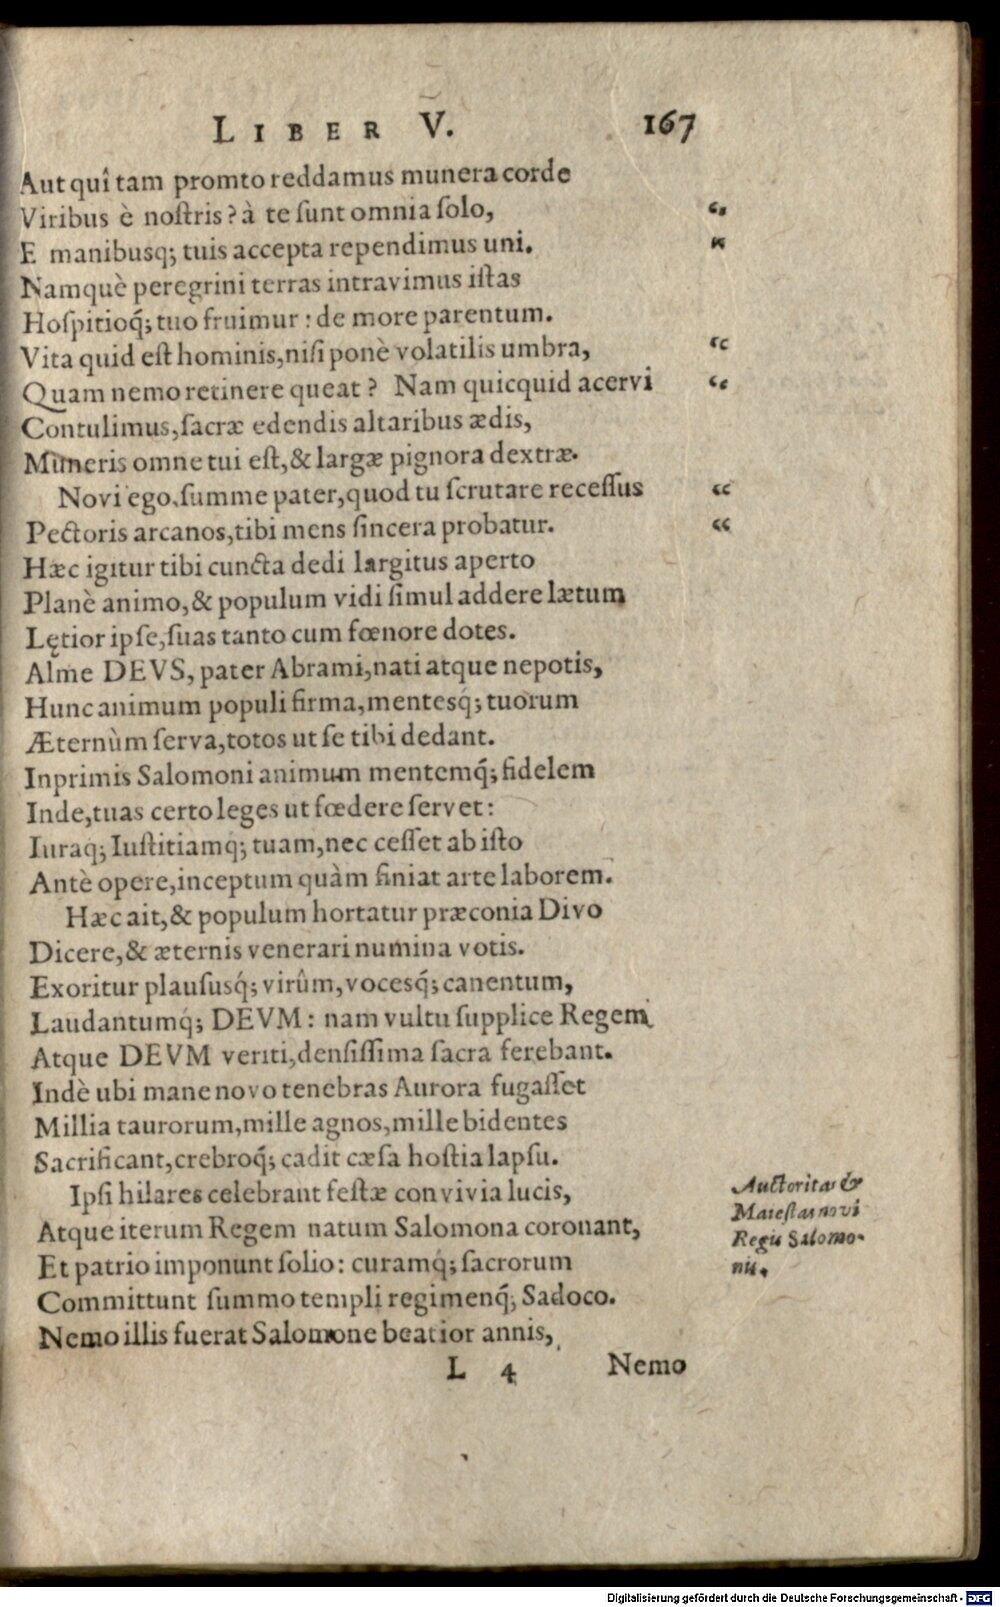 LIBER V. 167
Aut quî tam promto reddamus munera corde
Viribus è nostris? à te sunt omnia solo, “
E manibusq; tuis accepta rependimus uni. “
Namquè peregrini terras intravimus istas
Hospitioq́; tuo fruimur: de more parentum.
Vita quid est hominis, nisi ponè volatilis umbra, “
Quam nemo retinere queat? Nam quicquid acervi “
Contulimus, sacræ edendis altaribus ædis,
Muneris omne tui est, & largæ pignora dextræ.
Novi ego, summe pater, quod tu scrutare recessus “
Pectoris arcanos, tibi mens sincera probatur. “
Hæc igitur tibi cuncta dedi largitus aperto
Planè animo, & populum vidi simul addere lætum
Lętior ipse, suas tanto cum fœnore dotes.
Alme DEVS, pater Abrami, nati atque nepotis,
Hunc animum populi firma, mentesq́; tuorum
Æternùm serva, totos ut se tibi dedant.
Inprimis Salomoni animum mentemq́; fidelem
Inde, tuas certo leges ut fœdere servet:
Iuraq; Iustitiamq; tuam, nec cesset ab isto
Antè opere, inceptum quàm finiat arte laborem.
Hæc ait, & populum hortatur præconia Divo
Dicere, & æternis venerari numina votis.
Exoritur plaususq́; virûm, vocesq́; canentum,
Laudantumq́; DEVM: nam vultu supplice Regem
Atque DEVM veriti, densissima sacra ferebant.
Indè ubi mane novo tenebras Aurora fugasset
Millia taurorum, mille agnos, mille bidentes
Sacrificant, crebroq́; cadit cæsa hostia lapsu.
Ipsi hilares celebrant festæ convivia lucis,
Atque iterum Regem natum Salomona coronant,
Et patrio imponunt solio: curamq́; sacrorum
Committunt summo templi regimenq́; Sadoco.
Nemo illis fuerat Salomone beatior annis,
Auctoritas &
Maiestas novi
Regis Salomo-
nis.
L 4 Nemo
Digitalisierung gefördert durch die Deutsche Forschungsgemeinschaft - DFG